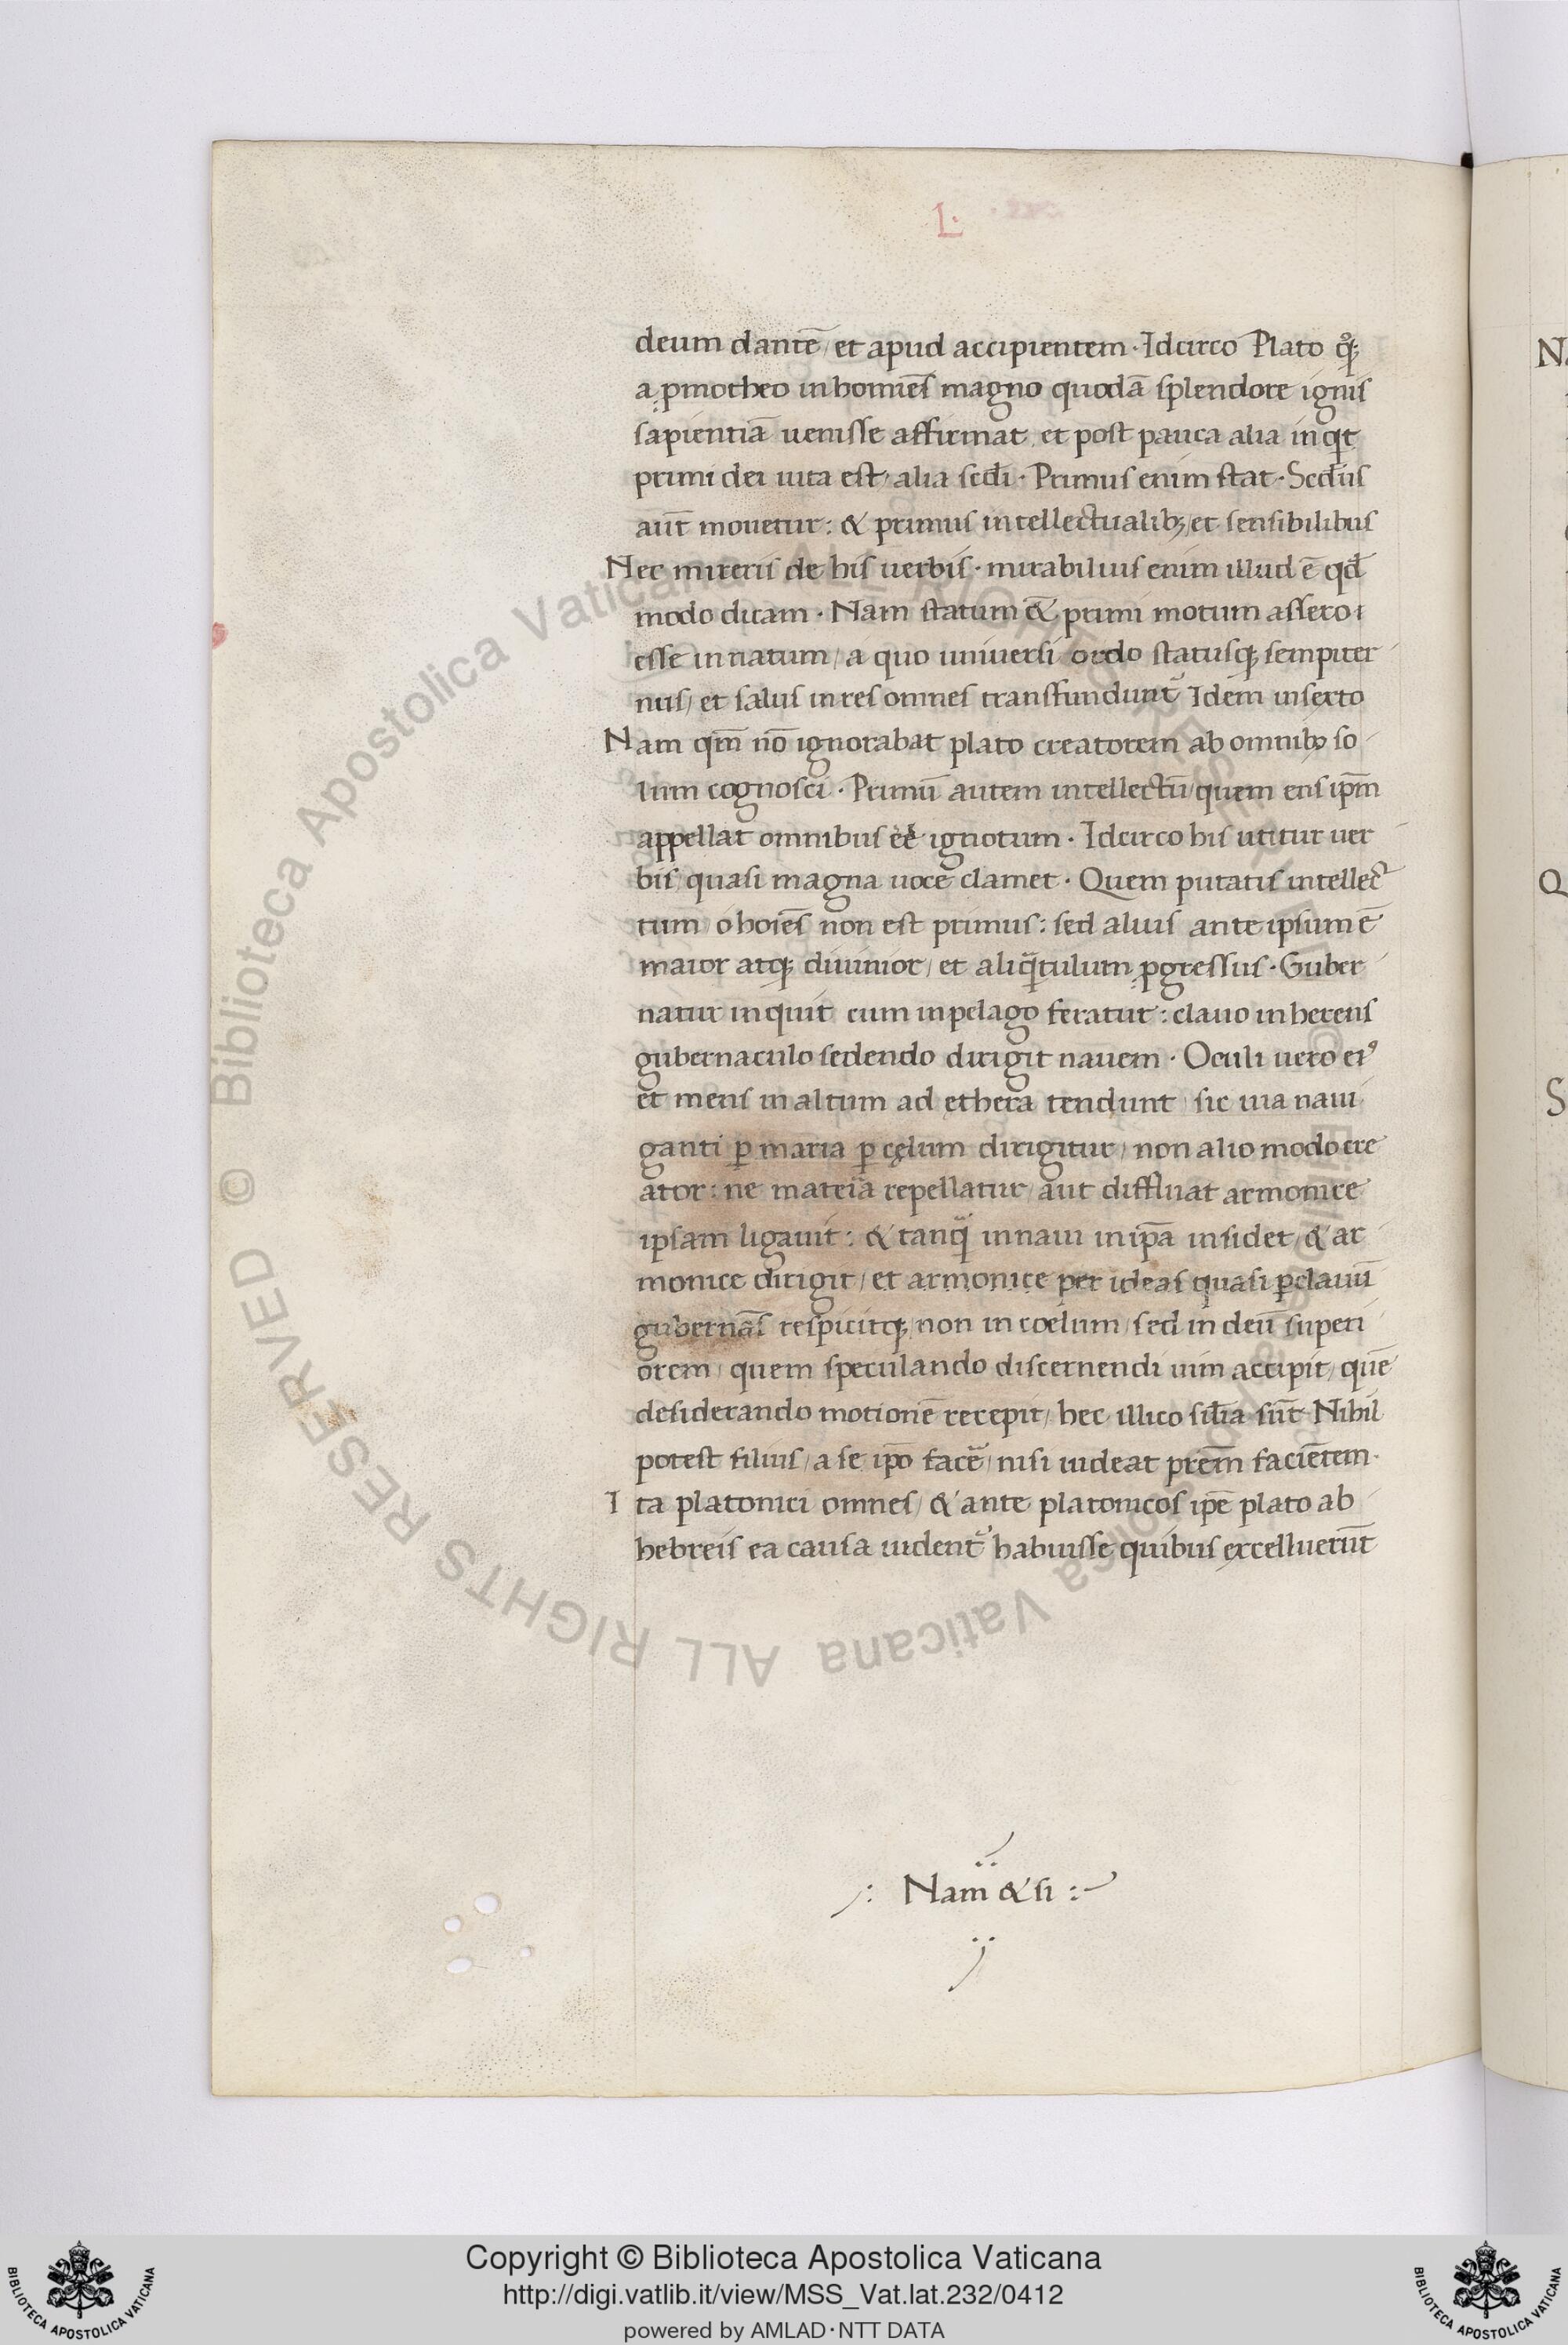 L·
deum dantē/ et apud accipientem · Idcirco Plato qͦꝫ
a ꝓmotheo in homiēs magno quodā splendore ignis
sapientiā uenisse affirmat et post pauca alia inqͥt
primi dei uita est/ alia scd̄i · Primus enim stat · Scd̄us
aut̄ mouetur : & primus intellectualibꝫ/ et sensibilibus
Nec mireris de his uerbis · mirabilius enim illud ē qd̄
modo dicam · Nam statum &̄ primi motum assero
esse innatum/ a quo uniuersi ordo statusqꝫ sempiter
nus/ et salus in res omnes transfundunt᷑ Idem in sexto
Nam qm̄ nō ignorabat plato creatorem ab omnibꝫ so
lum cognosci · Primū autem intellectū/ quem ens ip̄m
appellat omnibus eē ignotum · Idcirco his utitur uer
bis quasi magna uoce clamet · Quem putatis intellec
tum/ o hoīes non est primus : sed alius ante ipsum ē
maior atqꝫ diuinior/ et aliqͣ̄tulum ꝓgressus · Guber
natur inquit cum in pelago feratur : clauo inherens
gubernaculo sedendo dirigit nauem · Oculi uero eiꝰ
et mens in altum ad ethera tendunt sic uia naui
ganti ꝑ maria ꝑ cęlum dirigitur/ non alio modo cre
ator : ne materia repellatur/ aut diffluat armonice
ipsam ligauit : & tanqͣ̄ in naui in ip̄a insidet/ & ar
monice dirigit/ et armonice per ideas quasi ꝑ clauū
gubernās respicitqꝫ/ non in coelum/ sed in deū superi
orem/ quem speculando discernendi uim accipit/ quē
desiderando motionē recepit/ hec illico sil̄ia sūt Nihil
potest filius/ a se ip̄o facē/ nisi uideat prēm faciētem ·
Ita platonici omnes/ & ante platonicos ip̄e plato ab
hebreis ea causa uident᷑ habuisse quibus excelluerūt
Nam & si
Copyright © Biblioteca Apostolica Vaticana
http://digi.vatlib.it/view/MSS_Vat.lat.232/0412
powered by AMLAD·NTT DATA
BIBLIOTECA APOSTOLICA VATICANA
BIBLIOTECA APOSTOLICA VATICANA
© Biblioteca Apostolica Vaticana ALL RIGHTS RESERVED
© Biblioteca Apostolica Vaticana ALL RIGHTS RESERVED